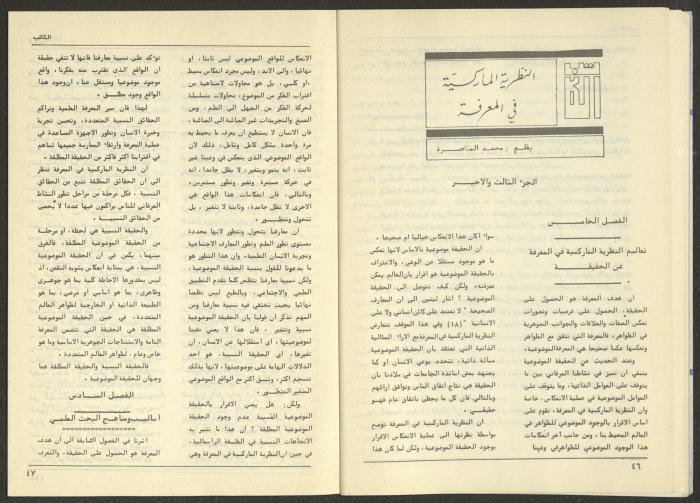 النظرية الماركسيّة
في المعرفة
بقلم : محمد المناصرة
الجزء الثالث والاخير
الفصل الخامس
تعاليم النظرية الماركسية في المعرفة
عن الحقيقة
ان هدف المعرفة هو الحصول على
الحقيقة، الحصول على فرضيات وتصورات
تعكس الصفات والعلاقات والجوانب الجوهرية
في الظواهر، فالمعرفة التي تتفق مع الظاهر
وتعكسها عكسا صحيحا هي المعرفة الموضوعية،
وعند الحديث عن الحقيقة الموضوعية
ينبغي ان نميز في نشاطنا العرفاني بين ما
يتوقف على العوامل الذاتية، وما يتوقف على
العوامل الموضوعية في عملية الانعكاس، خاصة
وان النظرية الماركسية في المعرفة، تقوم على
اساس الاقرار بالوجود الموضوعي للظواهر في
العالم المحيط بنا، ومن جانب آخر انعكاسات
هذا الوجود الموضوعي للظواهر في وعينا
سواء اكان هذا الانعكاس خياليا ام صحيحا .
ان الحقيقة موضوعية بالاساس لانها تعكس
ما هو موجود مستقلا عن الوعي، والاعتراف
بالحقيقة الموضوعية هو اقرار بان العالم يمكن
معرفته، ولكن كيف نتوصل الى الحقيقة
الموضوعية ؟ اشار لينين الى ان المعارف
الصحيحة " لا تعتمد على كائن انساني ولا على
الانسانية " (١٨) وفي هذا الموقف تتعارض
النظرية الماركسية في المعرفة مع الاراء المثالية
الذاتية التي تعتقد بان الحقيقة الموضوعية
مسألة ذاتية، تتحدد بوعي الانسان او كما
يجتهد بعض اساتذة الجامعات في بلادنا بان
الحقيقة هي نتاج اتفاق الناس وتوافق ارائهم
وبالتالي فان كل ما يحظى باتفاق عام فهو
حقيقي .
ان النظرية الماركسية في المعرفة توضح
بواسطة نظرتها الى عملية الانعكاس الاقرار
بوجود الحقيقة الموضوعية، ولكن لما كان هذا
٤٦
الكاتب
الانعكاس للواقع الموضوعي ليس ثابتا، او
نهائيا، والى الابد، وليس مجرد انعكاس بسيط
او كلي، بل هو محاولات لامتناهية من
اقتراب الفكر من الموضوع، محاولات متسلسلة
لحركة الفكر من الجهل الى العلم، ومن
الصيغ والتجريدات غير الجالية الى الجالية،
فان الانسان لا يستطيع ان يعرف ما يحيط به
مرة واحدة بشكل كامل وشامل، ذلك لان
الواقع الموضوعي الذي ينعكس في وعينا غير
ثابت، انه ينمو ويتغير، لا يظل جامدا، انه
في حركة مستمرة وتغير وتطور مستمرين .
وبالتالي، فان انعكاسات هذا الواقع هي
الاخرى لا تظل جامدة، وثابتة لا تتغير، بل
تتحول وتتطور .
ان معارفنا تتحول وتتطور لانها محددة
بمستوى تطور العلم وتطور المعارف الاجتماعية
وتجربة الانسان العلمية، وان هذا التطور هو
ما يدعونا للقول بنسبية الحقيقة الموضوعية،
ولكن نسبية معارفنا تتقلص كلما تقدم التطبيق
العلمي والاجتماعي، وبالطبع ليس تقلصا
نهائيا بحيث تختفي فيه نسبية معارفنا ومن
المهم تذكر ان قولنا بان الحقيقة الموضوعية
نسبية وتتغير ، فان هذا لا يعني نفينا
لموضوعيتها، اي استقلالها عن الانسان، ان
تغيرها، اي الحقيقة النسبية، هو احد
الدلالات الهامة على موضوعيتها، لانها بذلك
تنسجم اكثر، وتتسق اكثر مع الواقع الموضوعي
المتغير المتطور .
ولكن، هل يعني الاقرار بالحقيقة
الموضوعية النسبية عدم وجود الحقيقة
الموضوعية المطلقة ؟ ان هذا ما تشير به
الاتجاهات النسبية في الفلسفة الرأسمالية،
في حين ان النظرية الماركسية في المعرفة وهي
تؤكد على نسبية معارفنا فانها لا تنفي حقيقة
ان الواقع الذي نقترب منه بفكرنا، واقع
موجود موضوعيا ومستقل عنا، ان وجود هذا
الواقع وجود مطلق .
لهذا فان سير المعرفة العلمية وتراكم
الحقائق النسبية المتعددة، وتحسن تجربة
وخبرة الانسان وتطور الاجهزة المساعدة في
عملية المعرفة وارتقاء الممارسة جميعها تساهم
في اقترابنا اكثر فاكثر من الحقيقة المطلقة .
ان النظرية الماركسية في المعرفة تنظر
الى ان الحقائق المطلقة تنبع من الحقائق
النسبية ، فكل مرحلة من مراحل تطور النشاط
العرفاني للناس يراكمون فيها عددا لا يُحصى
من الحقائق النسبية .
والحقيقة النسبية هي لحظة، او مرحلة
من الحقيقة الموضوعية المطلقة، فالفرق
بينهما، يكمن في ان الحقيقة الموضوعية
النسبية ، هي بمثابة انعكاس يشوبه النقص، اذ
ليس بمقدورها الاحاطة كليا بما هو جوهري
وظاهري، بما هو اساسي او عرضي، بما هو
الطبيعة الذاتية او الخارجية لظواهر العالم
المتعددة، في حين الحقيقة الموضوعية
المطلقة هي الحقيقة التي تتضمن المعرفة
التامة والاستنتاجات الجوهرية الاساسية وما هو
خاص وعام، لظواهر العالم المتعددة .
فالحقيقة النسبية والحقيقة المطلقة هما
وجهان للحقيقة الموضوعية .
الفصل السادس
اساليب ومناهج البحث العلمي
اشرنا في الفصول السابقة الى ان هدف
المعرفة هو الحصول على الحقيقة، والتعرف
٤٧